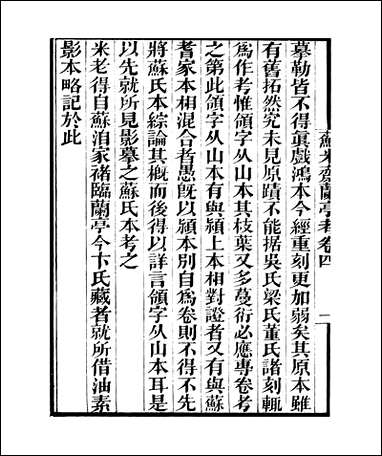 蘇米齋蘭亭考卷四 一
摹勒皆不得眞戲鴻本今經重刻更加弱矣其原本雖
有舊拓然究未見原蹟不能据吳氏梁氏董氏諸刻輒
爲作考惟領字从山本其枝葉又多蔓衍必應專卷考
之第此領字从山本有與潁上本相對證者又有與蘇
耆家本相混合者愚旣以潁本別自爲卷則不得不先
將蘇氏本綜論其槪而後得以詳言領字从山本耳是
以先就所見影摹之蘇氏本考之
米老得自蘇洎家褚臨蘭亭今卞氏藏者就所借油素
影本略記於此